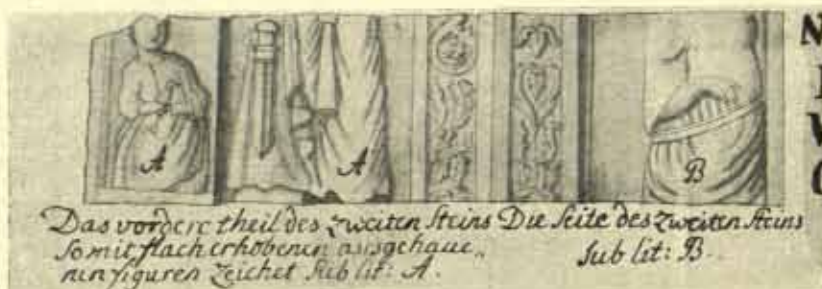 A
A
B
N
V
Das vordere theil des zweiten steins
so mit flach erhobenen ausgehaue„
nen figuren zeichet sub lit: A.
Die seite des zweiten steins
sub lit: B.